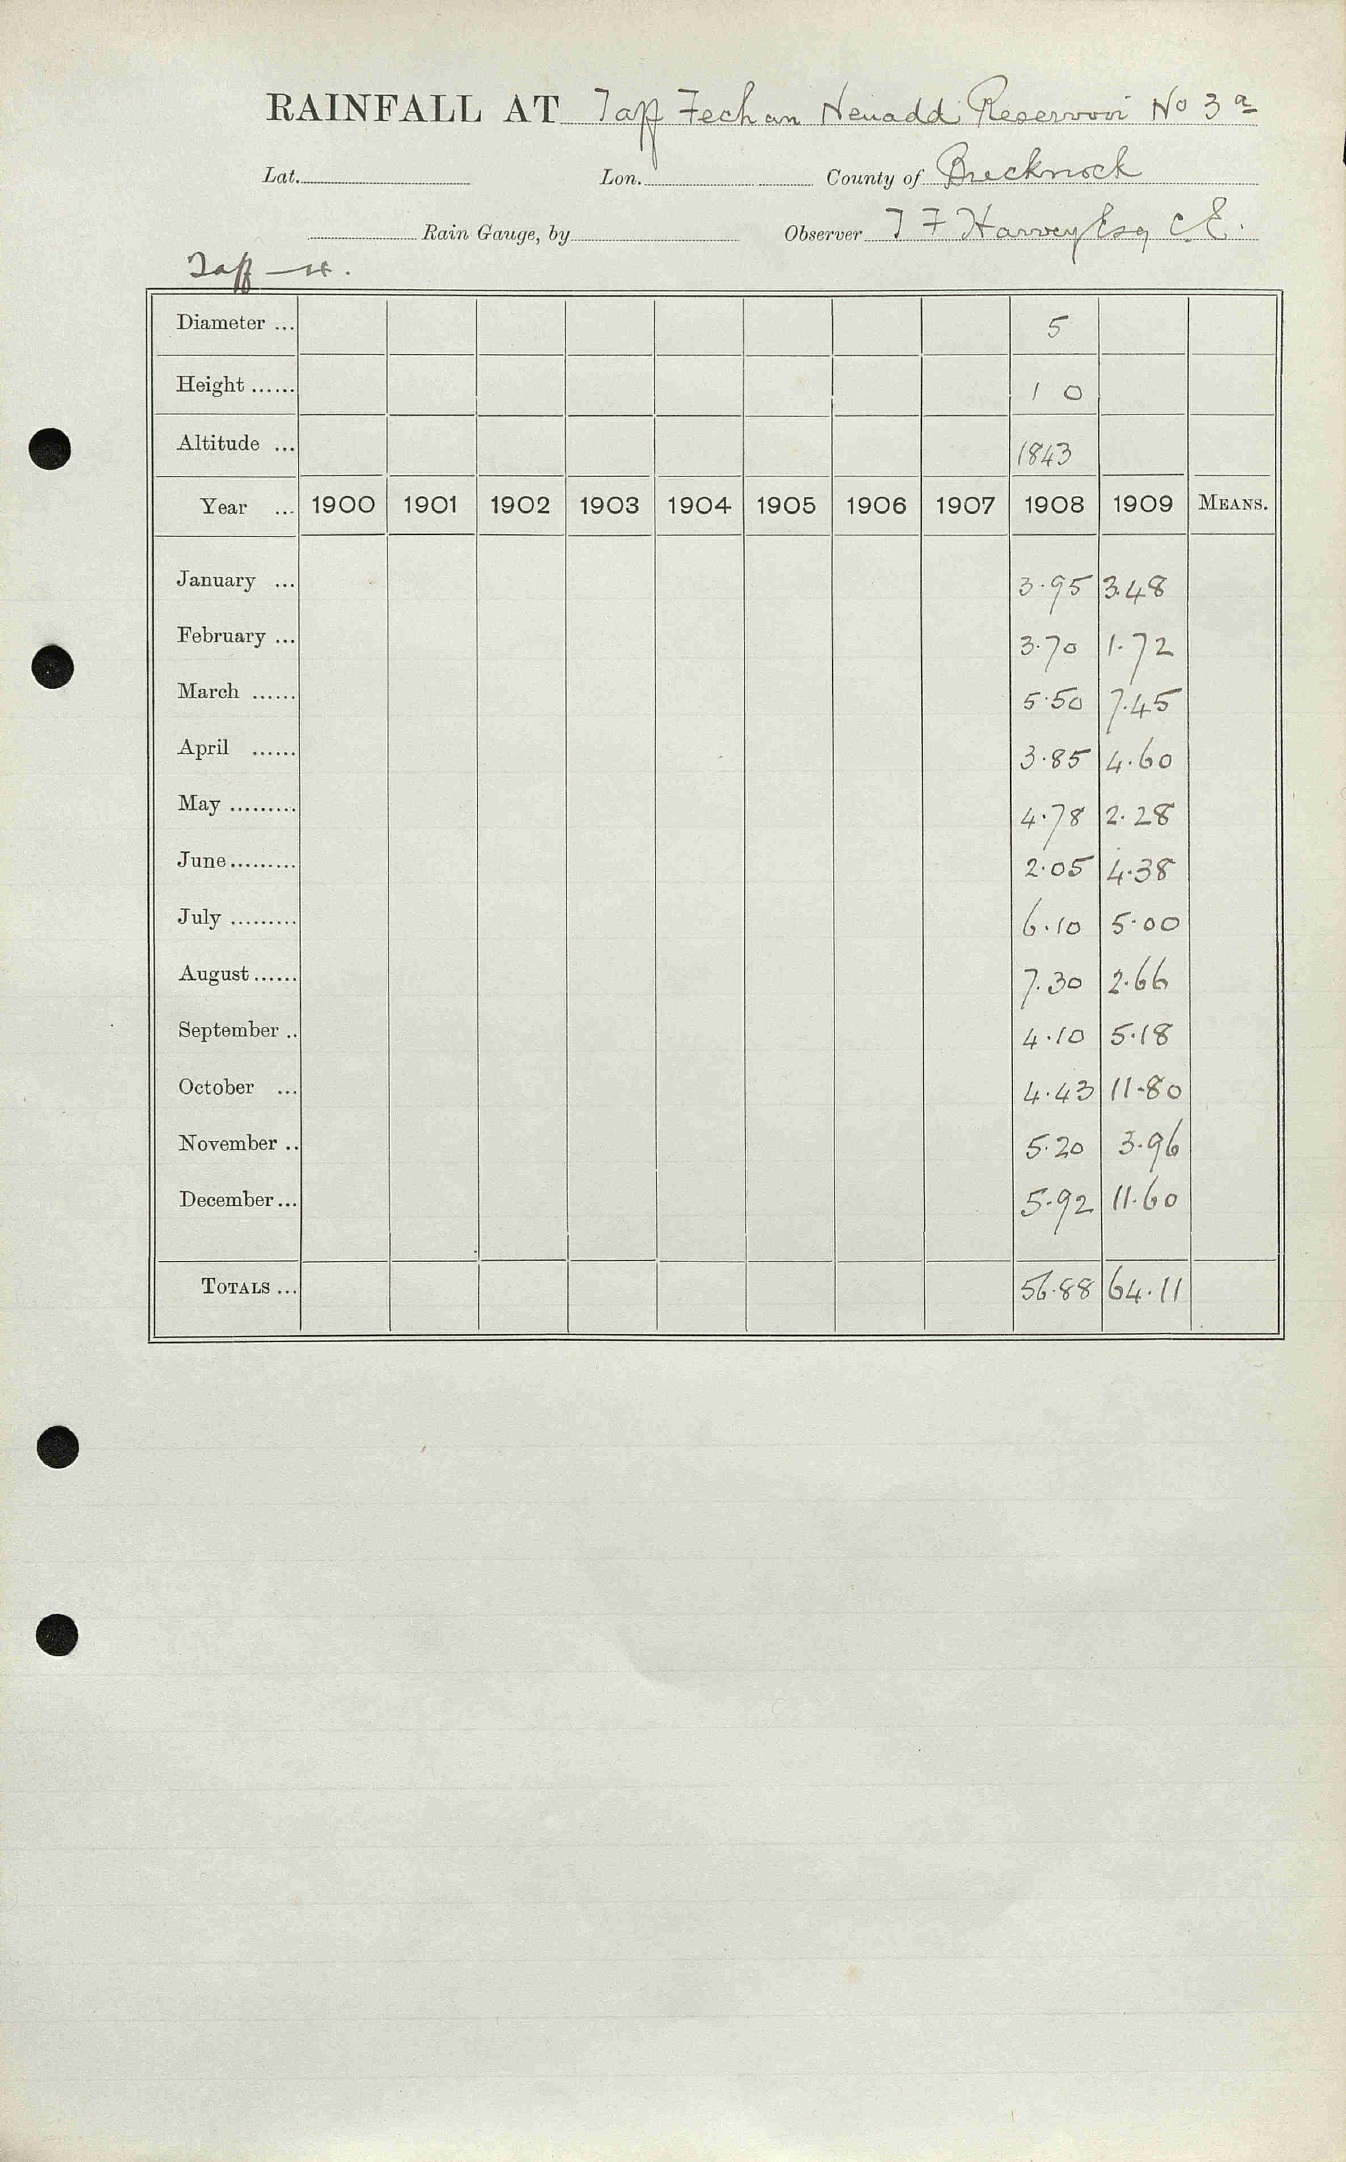 RAINFALL AT Taff Fechan Neuadd Reservoir No 3a
Lat. Lon. County of Brecknock
Rain Gauge, by Observer T F Harvey Esq C.E.
Taff
Diameter ... 5
Height ...... 1 0
Altitude ... 1843
Year ... 1900 1901 1902 1903 1904 1905 1906 1907 1908 1909 MEANS.
January ... 3.95 3.48
February ... 3.70 1.72
March ...... 5.50 7.45
April ...... 3.85 4.60
May ......... 4.78 2.28
June ......... 2.05 4.38
July ......... 6.10 5.00
August ...... 7.30 2.66
September .. 4.10 5.18
October ... 4.43 11.80
November .. 5.20 3.96
December ... 5.92 11.60
TOTALS ... 56.88 64.11